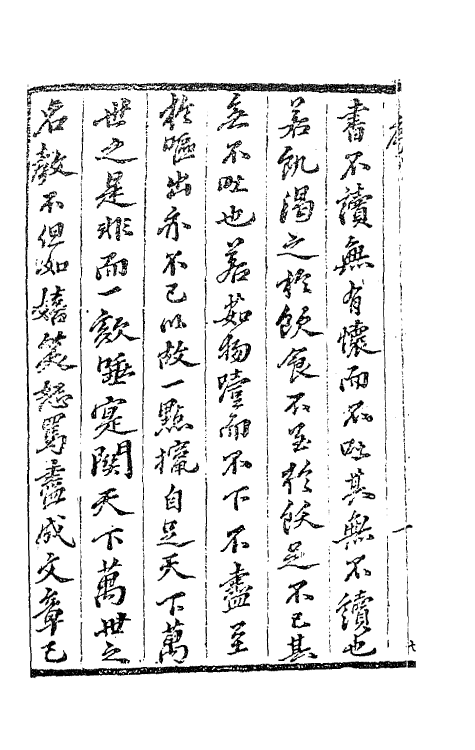 書不讀無有懷而不吐其無不讀也
若飢渴之於飲食不至於飫足不已其
無不吐也若茹物噎而不下不盡至
於嘔出亦不已以故一點攛自足天下萬
世之是非而一欬唾寔關天下萬世之
名教不但如嬉笑怒罵盡成文章已
一